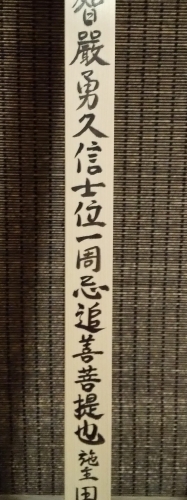 智嚴勇久信士位一周忌追善菩提也 施主